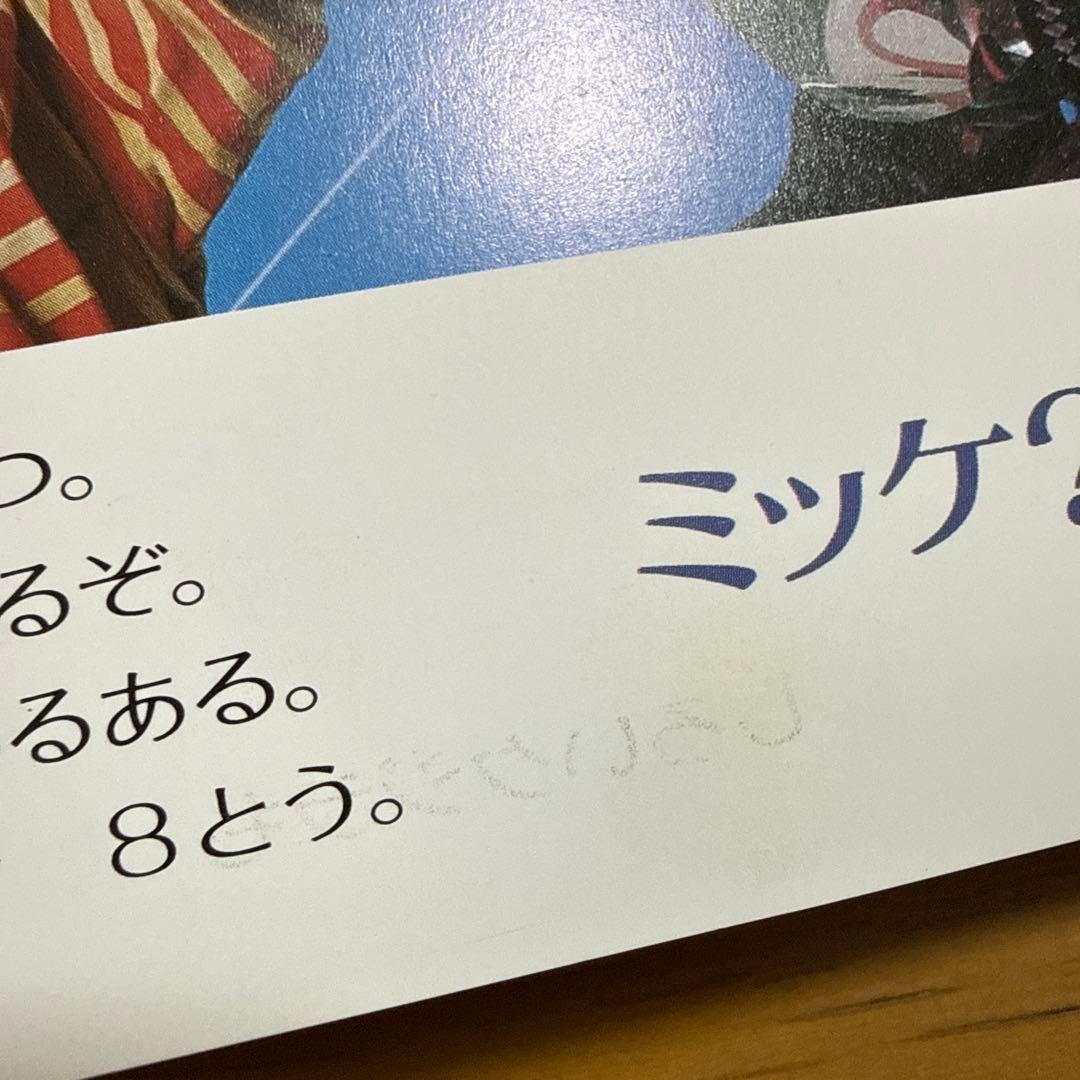 つ。
るぞ。
るある。
8とう。
ミッケ?